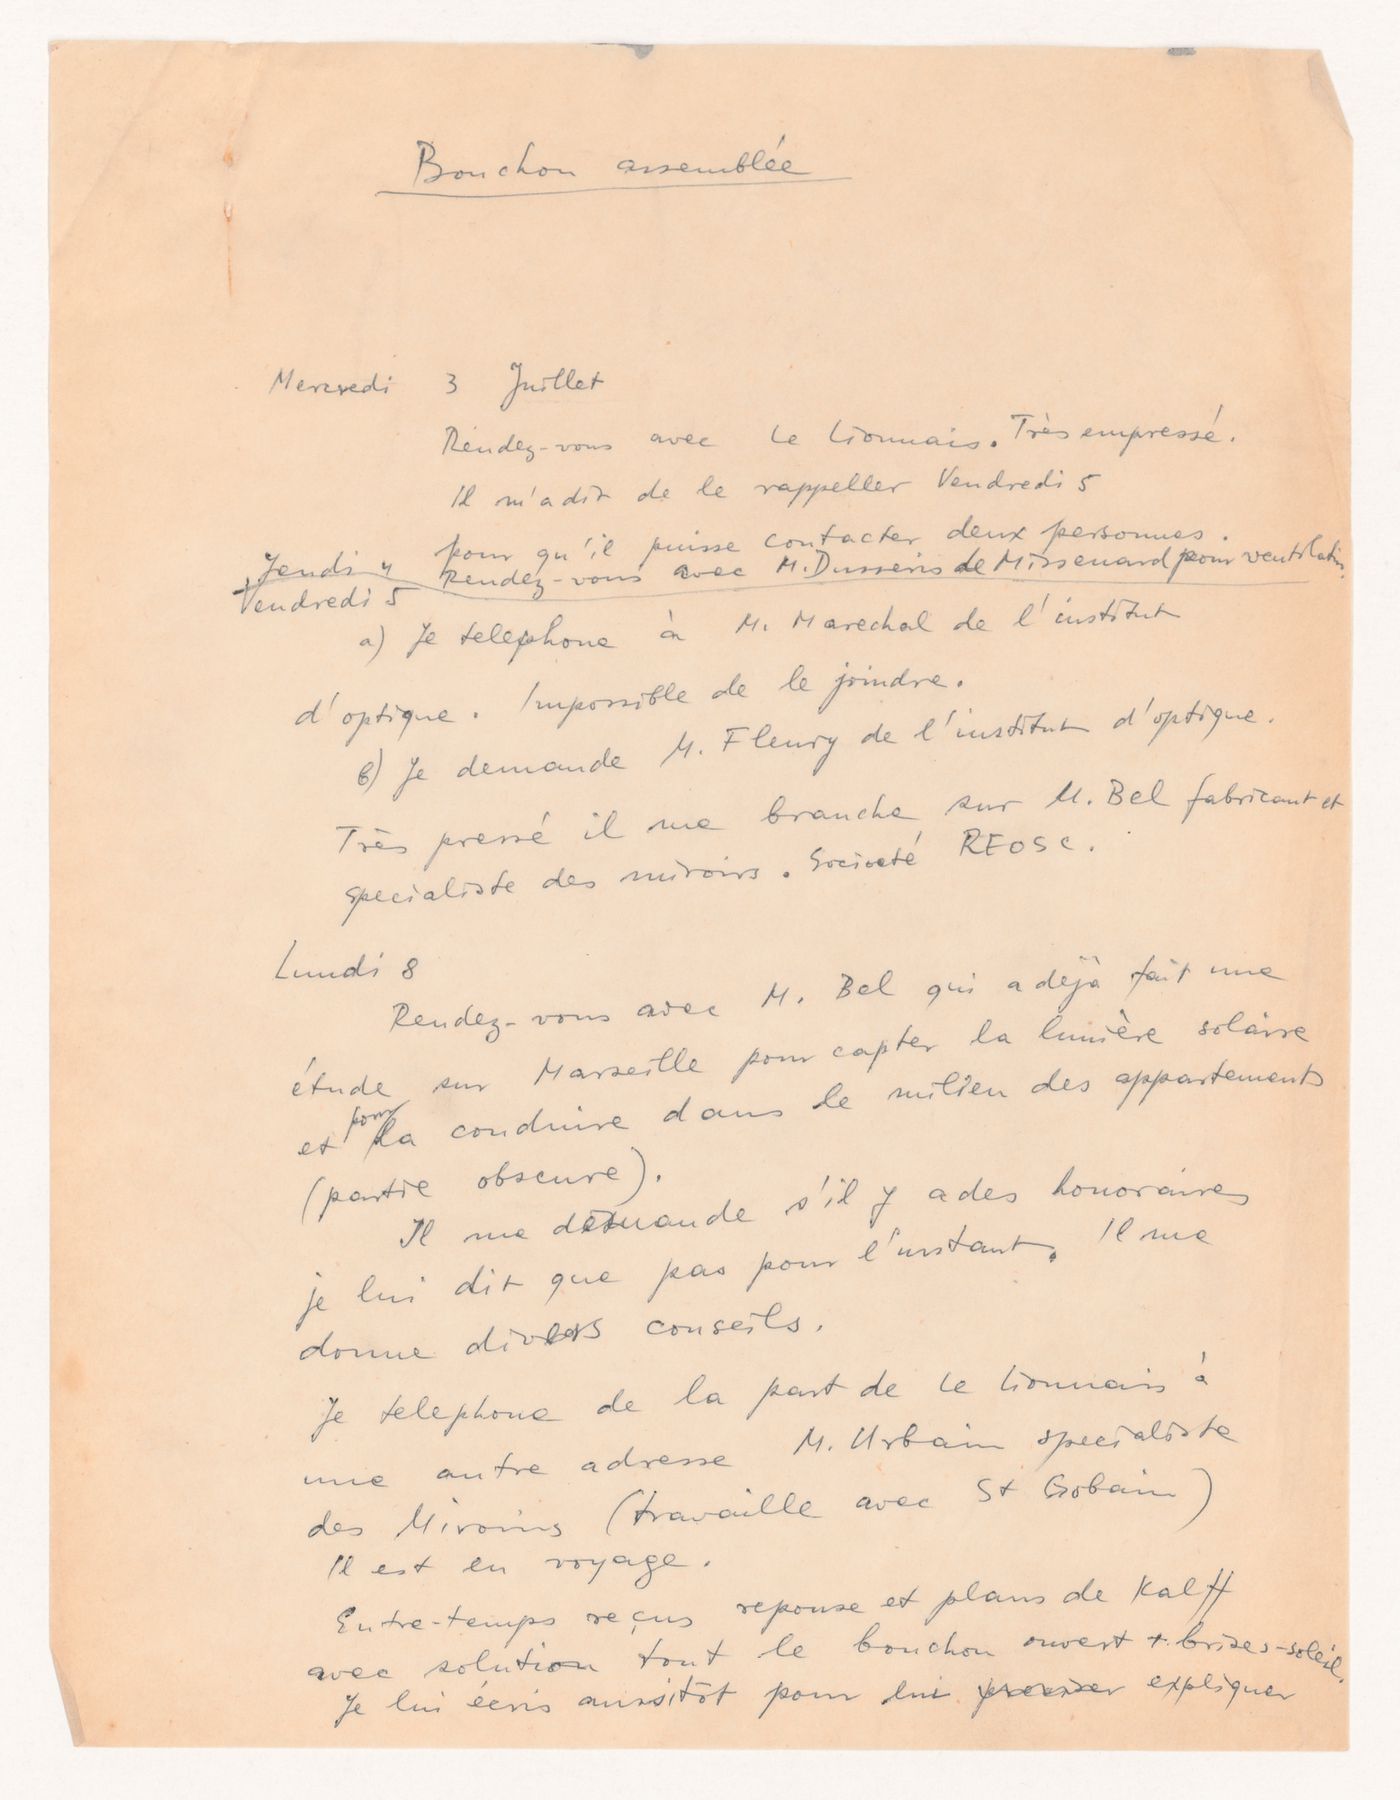 Bouchon assemblée
Mercredi 3 Juillet
Rendez-vous avec Le Lionnais. Très empressé.
Il m'a dit de le rappeller Vendredi 5
pour qu'il puisse contacter deux personnes.
Jeudi 4 Rendez-vous avec M. de Missenard pour ventilation.
Vendredi 5
a) Je telephone à M. Marechal de l'institut
d'optique. Impossible de le joindre.
b) Je demande M. Fleury de l'institut d'optique.
Très pressé il me branche sur M. Bel fabricant et
specialiste des miroirs. Societé REOSC.
Lundi 8
Rendez-vous avec M. Bel qui a déjà fait une
étude sur Marseille pour capter la lumière solaire
et pour la conduire dans le milieu des appartements
(partie obscure).
Il me demande s'il y a des honoraires
je lui dit que pas pour l'instant. Il me
donne divers conseils.
Je telephone de la part de Le Lionnais à
une autre adresse M. Urbain specialiste
des Miroirs (travaille avec St Gobain)
Il est en voyage.
Entre-temps reçus reponse et plans de Kalff
avec solution tout le bouchon ouvert + brises-soleil.
Je lui écris aussitôt pour lui expliquer